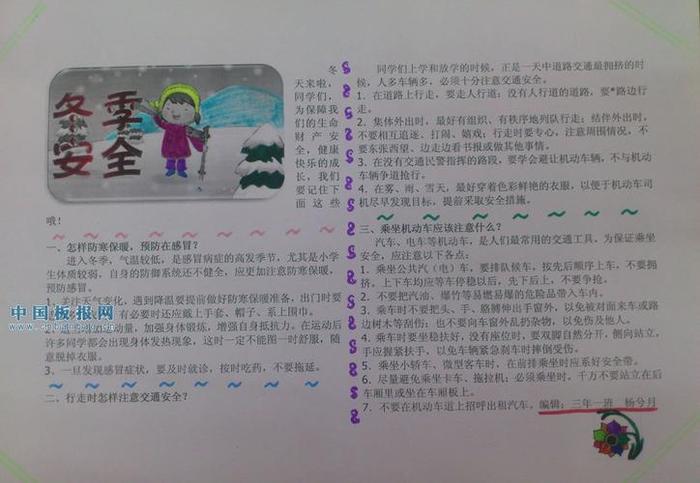 冬季
安全
冬
天来啦，
同学们，
为保障我
们的生命
财产安
全，健康
快乐的成
长，我们
要记住下
面这些
哦！
一、怎样防寒保暖，预防在感冒？
进入冬季，气温较低，是感冒病症的高发季节，尤其是小学
生体质较弱，自身的防御系统还不健全，应更加注意防寒保暖，
预防感冒。
1、关注天气变化，遇到降温要提前做好防寒保暖准备，出门时要
有必要时还应戴上手套、帽子、系上围巾。
动量，加强身体锻炼，增强自身抵抗力。在运动后
许多同学都会出现身体发热现象，这时一定不能图一时舒服，随
意脱掉衣服。
3、一旦发现感冒症状，要及时就诊，按时吃药，不要拖延。
二、行走时怎样注意交通安全？
同学们上学和放学的时候，正是一天中道路交通最拥挤的时
候，人多车辆多，必须十分注意交通安全。
1、在道路上行走，要走人行道；没有人行道的道路，要*路边行
走。
2、集体外出时，最好有组织、有秩序地列队行走；结伴外出时，
不要相互追逐、打闹、嬉戏；行走时要专心，注意周围情况，不
要东张西望、边走边看书报或做其他事情。
3、在没有交通民警指挥的路段，要学会避让机动车辆，不与机动
车辆争道抢行。
4、在雾、雨、雪天，最好穿着色彩鲜艳的衣服，以便于机动车司
机尽早发现目标，提前采取安全措施。
三、乘坐机动车应该注意什么？
汽车、电车等机动车，是人们最常用的交通工具，为保证乘坐
安全，应注意以下各点：
1、乘坐公共汽（电）车，要排队候车，按先后顺序上车，不要拥
挤。上下车均应等车停稳以后，先下后上，不要争抢。
2、不要把汽油、爆竹等易燃易爆的危险品带入车内。
3、乘车时不要把头、手、胳膊伸出手窗外，以免被对面来车或路
边树木等刮伤；也不要向车窗外乱扔杂物，以免伤及他人。
4、乘车时要坐稳扶好，没有座位时，要双脚自然分开，侧向站立，
手应握紧扶手，以免车辆紧急刹车时摔倒受伤。
5、乘坐小轿车、微型客车时，在前排乘坐时应系好安全带。
6、尽量避免乘坐卡车、拖拉机；必须乘坐时，千万不要站立在后
车厢里或坐在车厢板上。
7、不要在机动车道上招呼出租汽车。编辑：三年一班 杨兮月
中国板报网